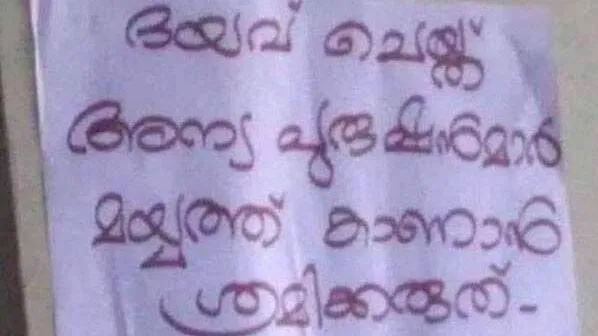 ദയവ് ചെയ്ത്
അന്യ പുരുഷൻമാർ
മയ്യത്ത് കാണാൻ
ശ്രമിക്കരുത്-